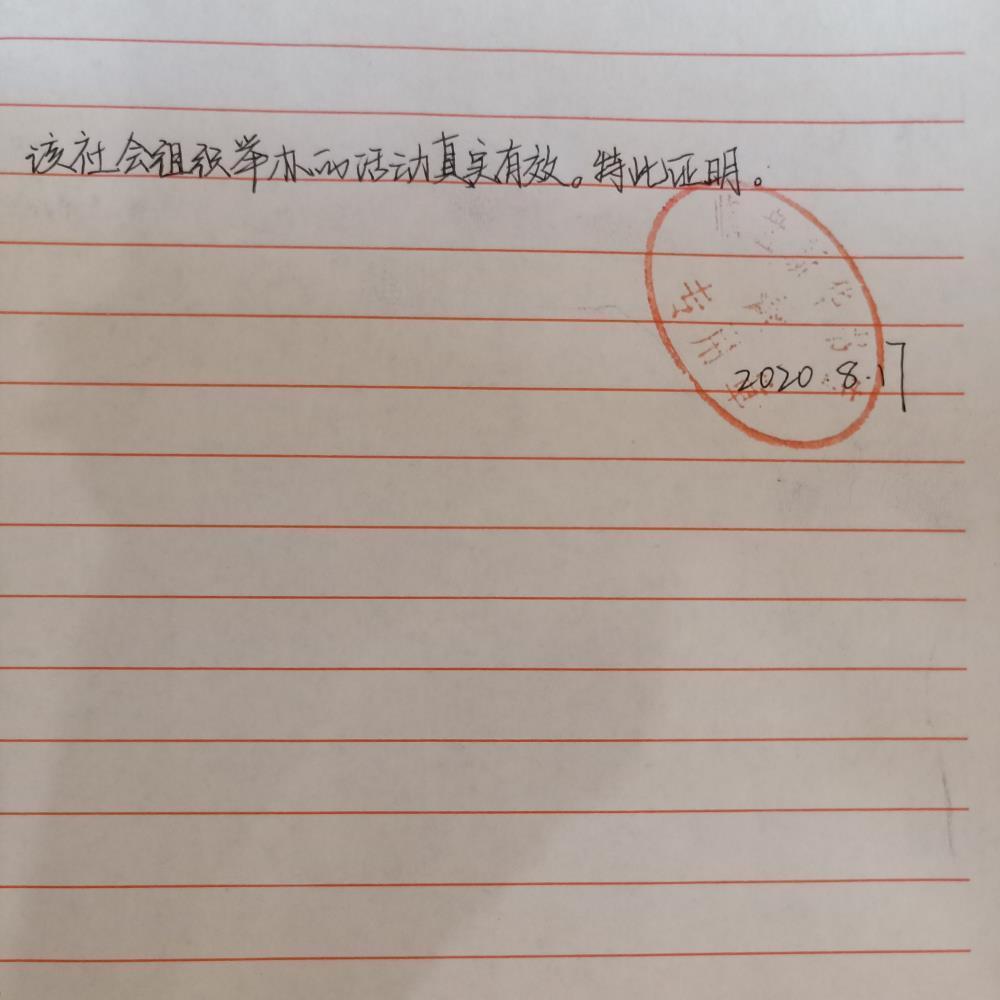 该社会组织举办的活动真实有效。特此证明。
专用章
2020.8.17